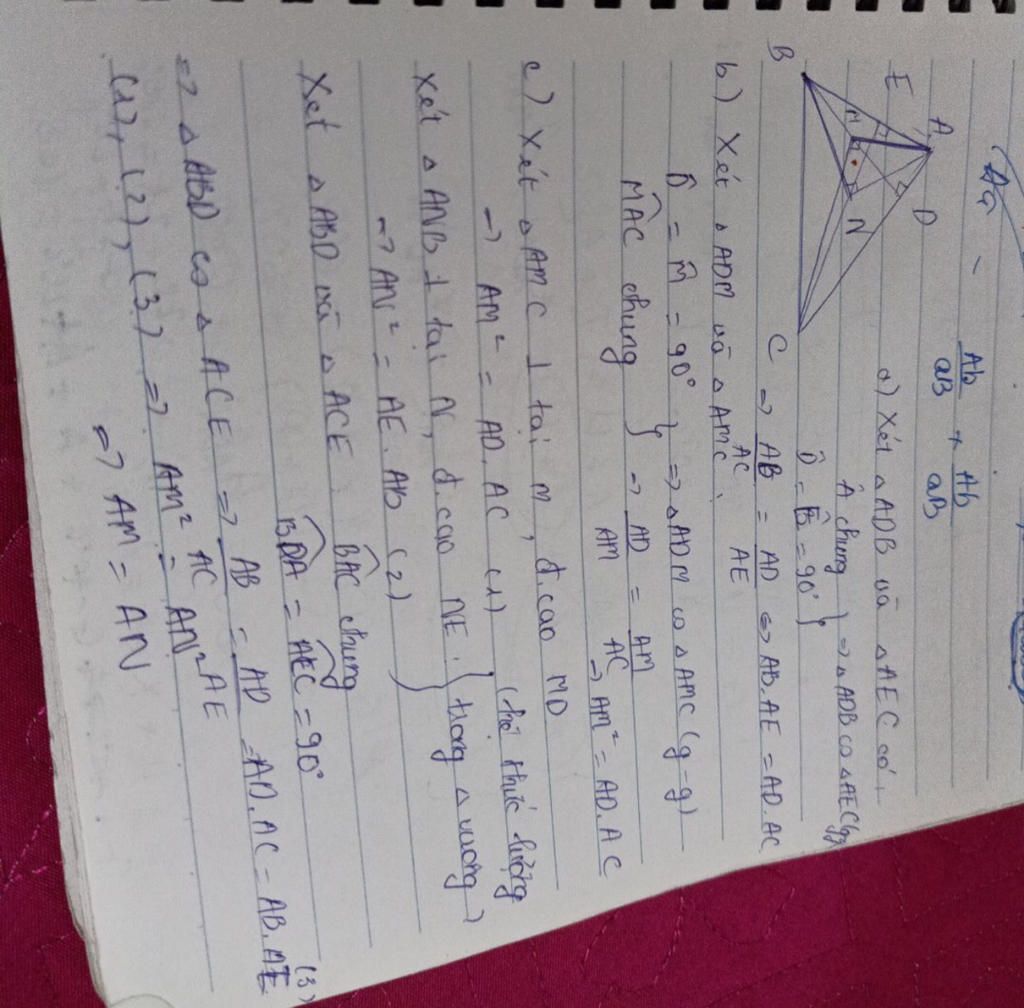 Ab/aB + Ab/aB
a) Xét △ADB và △AEC có:
Â chung } => △ADB ∽ △AEC (gg)
D̂ = Ê = 90° }
A
E
D
H
N
B
C
=> AB/AC = AD/AE <=> AB.AE = AD.AC
b) Xét △ADM và △AMC:
D̂ = M̂ = 90° } => △ADM ∽ △AMC (g-g)
MAC chung } => AD/AM = AM/AC
=> AM² = AD.AC
c) Xét △AMC ⊥ tại M, đ.cao MD
=> AM² = AD.AC (1) } (hệ thức lượng
Xét △ANB ⊥ tại N, đ.cao NE. } trong △ vuông)
=> AN² = AE.AB (2)
Xét △ABD và △ACE: BAC chung
BDA = AEC = 90°
=> △ABD ∽ △ACE => AB/AC = AD/AE = AD.AC = AB.AE (3)
(1), (2), (3) => AM² = AN²
=> AM = AN